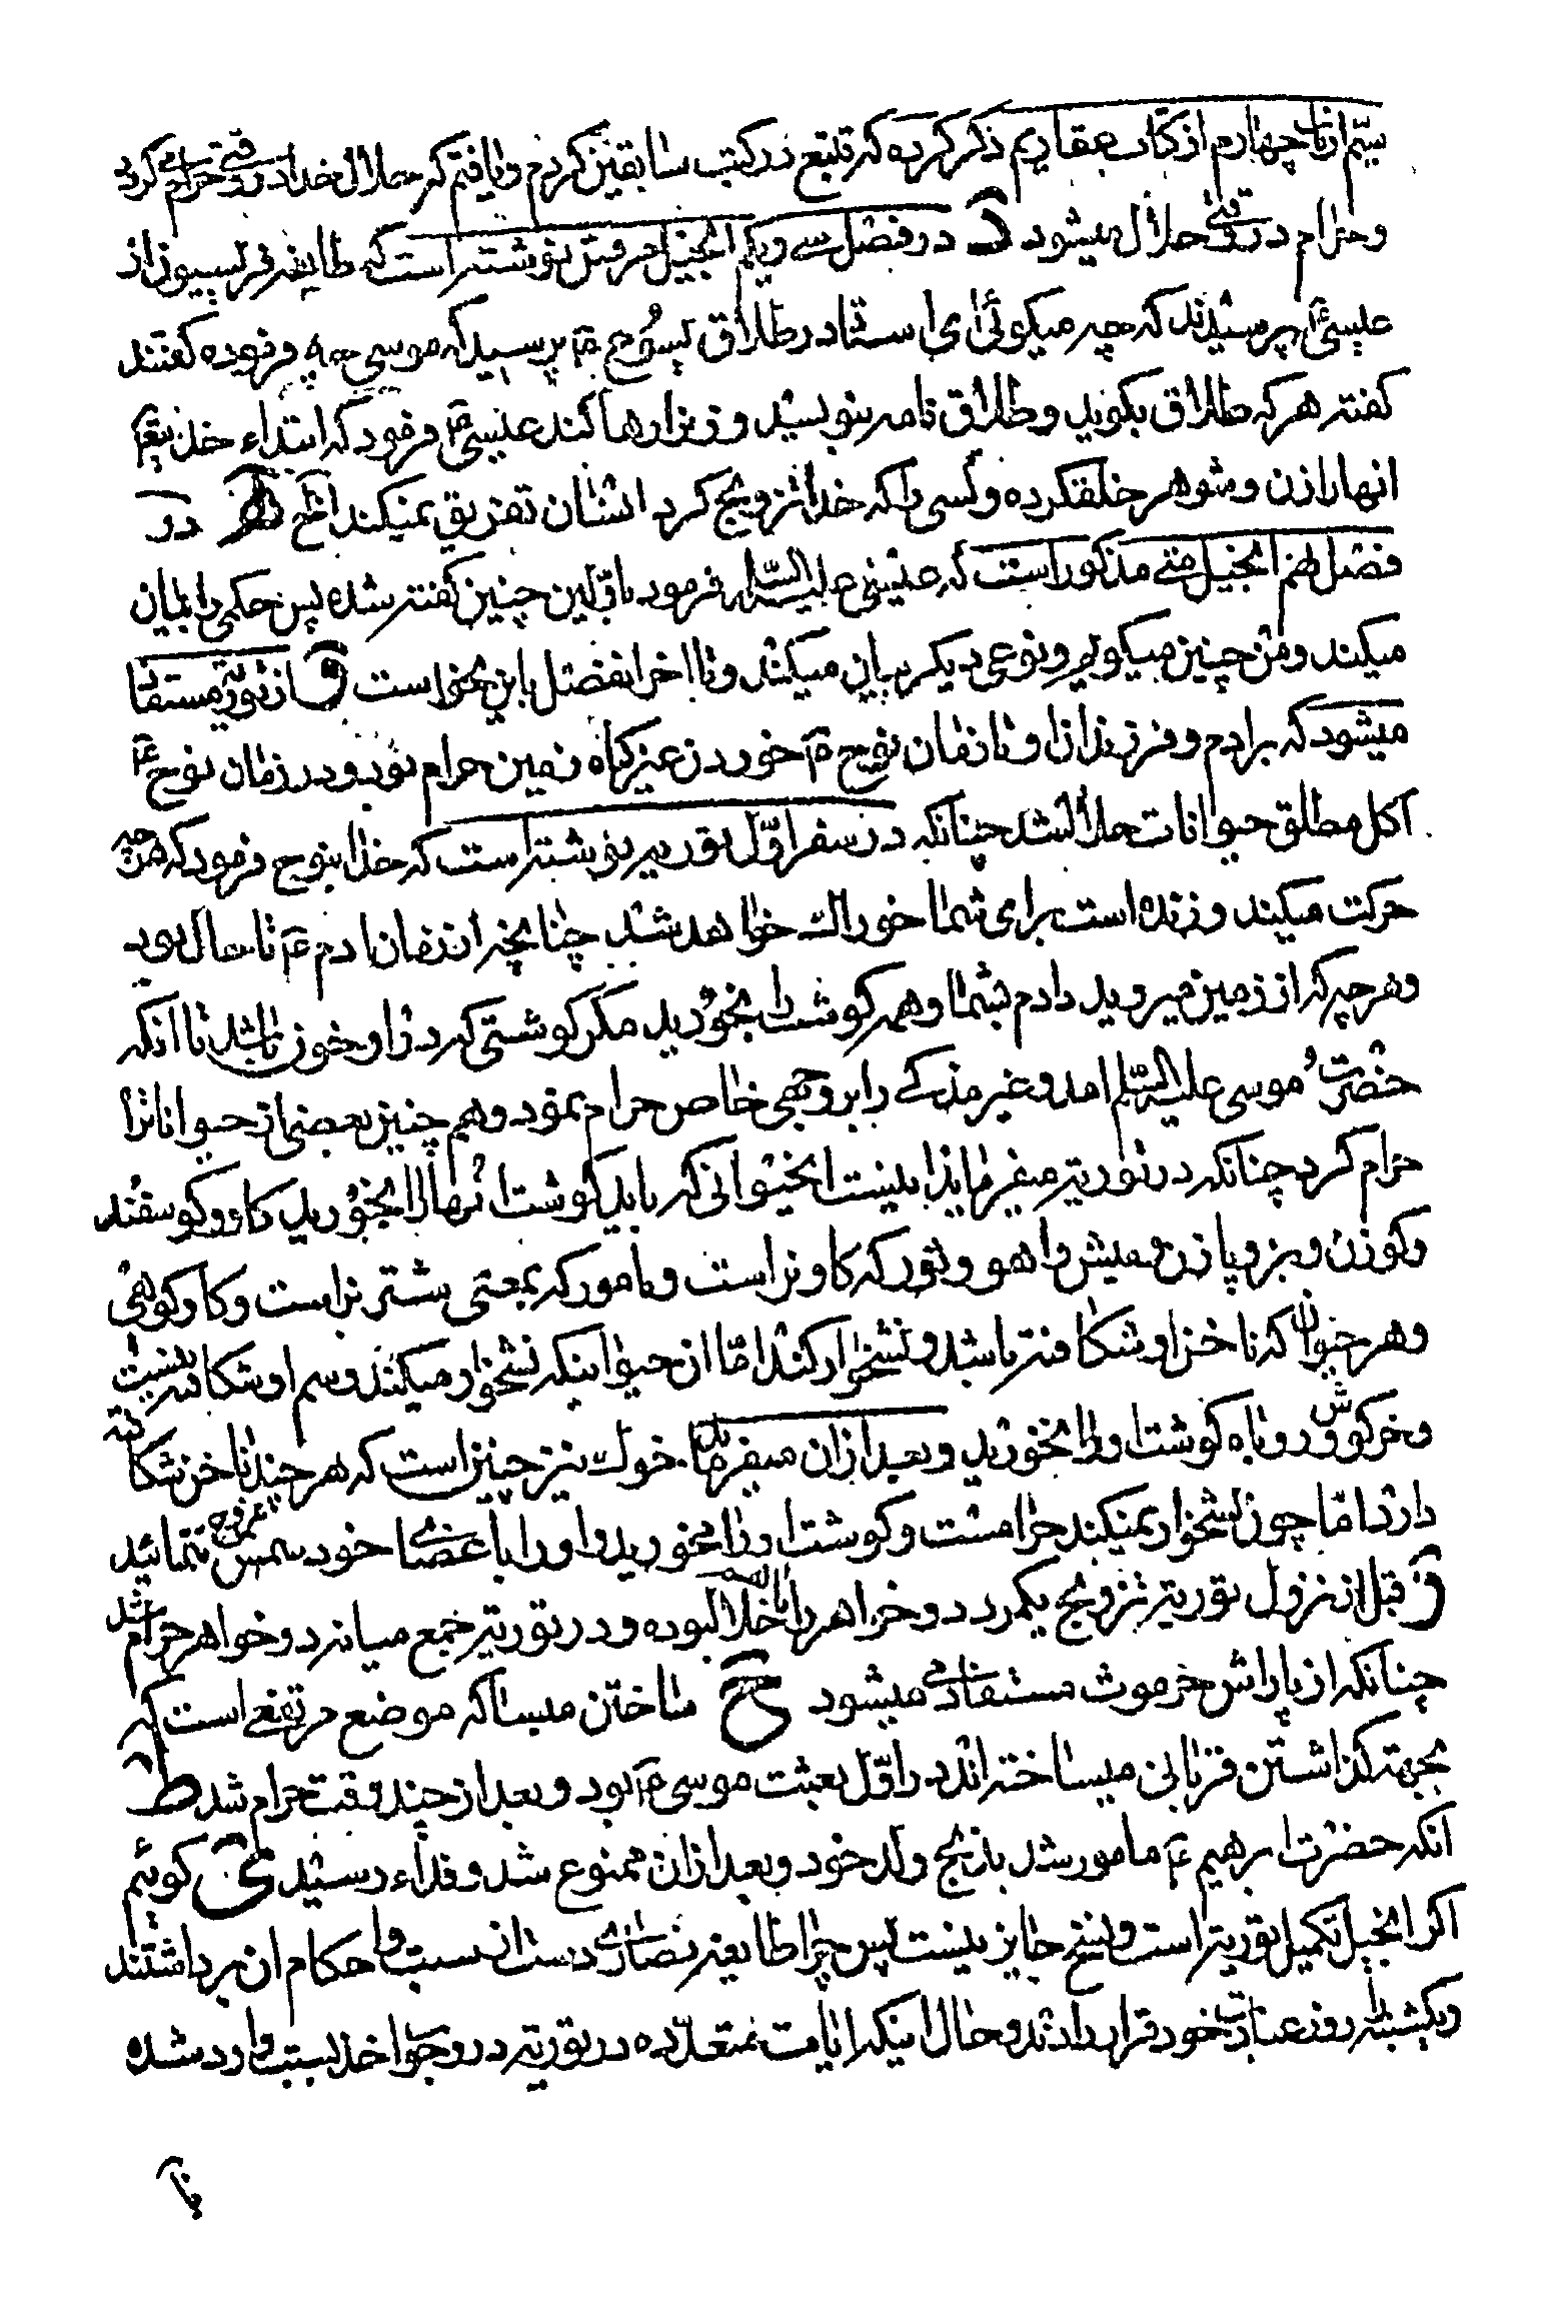 سیّم از باب چهارم از کتاب عقاریم ذکر کرده که تتبع در کتب سابقین کردم و یافتم که حلال خدا در وقتی حرام میکردد
و حرام در وقتی حلال میشود د در فصل سی و یکم انجیل مرقس نوشته است که طایفه فریسیون از
عیسی پرسیدند که چه میکوئی ای استاد در طلاق یسوع ع پرسید که موسی چه فرموده کفتند
کفته هر که طلاق بکوید و طلاق نامه بنویسد و زنرا رها کند عیسی ع فرمود که ابتداء خدایتع
انها را زن و شوهر خلقکرده و کسی را که خدا تزویج کرد انسان تفریق نمیکند الخ ه در
فصل نهم انجیل متی مذکور است که عیسی علیه السلام فرمود باوّلین چنین کفته شده پس حکمی را بیان
میکند و من چنین میکویم و نوعی دیکر بیان میکند و تا اخر انفصل باین نحو است و از توریة مستفاد
میشود که بر ادم و فرزندان او تا زمان نوح ع خوردن غیر کیاه زمین حرام بود و در زمان نوح ع
اکل مطلق حیوانات حلال شد چنانکه در سفر اوّل توریه نوشته است که خدا بنوح فرمود که هر چه
حرکت میکند و زنده است برای شما خوراک خواهد شد چنانچه از زمان ادم ع تا حال بود
و هر چه که از زمین میروید دادم بشما و همه کوشت را بخورید مکر کوشتی که در او خون باشد تا انکه
حضرت موسی علیه السلم امد و غیر مذکی را بر وجهی خاص حرام نمود و هم چنین بعضی از حیوانات را
حرام کرد چنانکه در توریة میفرماید اینست انحیوانی که باید کوشت انها را بخورید کاو و کوسفند
و کوزن و بز و پازن و میش و اهو و ثور که کاو نر است و یامور که بمعنی شتر نر است و کاو کوهی
و هر حیوان که ناخن او شکافته باشد و نشخوار کند امّا از حیوانیکه نشخوار میکند و سم او شکافته نیست
و خرکوش و روباه کوشت او را نخورید و بعد از ان میفرماید خوک نیز چنین است که هر چند ناخن شکافته
دارد امّا چون نشخوار نمیکند حرامست و کوشت او را مخورید و او را باعضای خود ممزوج ننمائید
ز قبل از نزول توریة تزویج یکمرد دو خواهر را حلال بوده و در توریة جمع میانه دو خواهر حرام شد
چنانکه از پاراش اخرموث مستفاد میشود ح ساختن میسا که موضع مرتفعی است که
بجهة کذاشتن قربانی میساخته اند در اوّل بعثت موسی ع بود و بعد از چند وقت حرام شد ط
انکه حضرت ابرهیم ع مامور شد بذبح ولد خود و بعد از ان ممنوع شد و فداء رسید ی کوئیم
اکر انجیل تکمیل توریة است و نسخ جایز نیست پس چرا طایفه نصاری دست از سبت و احکام ان برداشتند
و یکشنبه را روز عبادت خود قرار دادند و حال اینکه ایات متعدّده در توریة در وجوب اخذ سبت وارد شده